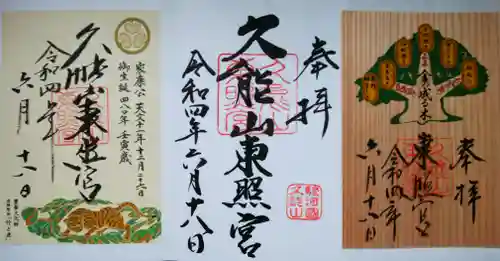 家康公 天文十一年十二月二十六日
御生誕四八〇年 壬寅歳
久能山東照宮
令和四年
六月
十八日
奉拝
久能山東照宮
令和四年六月十八日
駿河國
久能山
金の成る木
奉拝
東照宮
令和四年
六月十八日